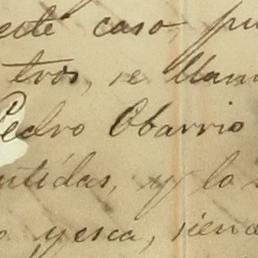 caso, pu
tros, se llam
Pedro Obarrio
ntidas, y lo
o yesca, sien